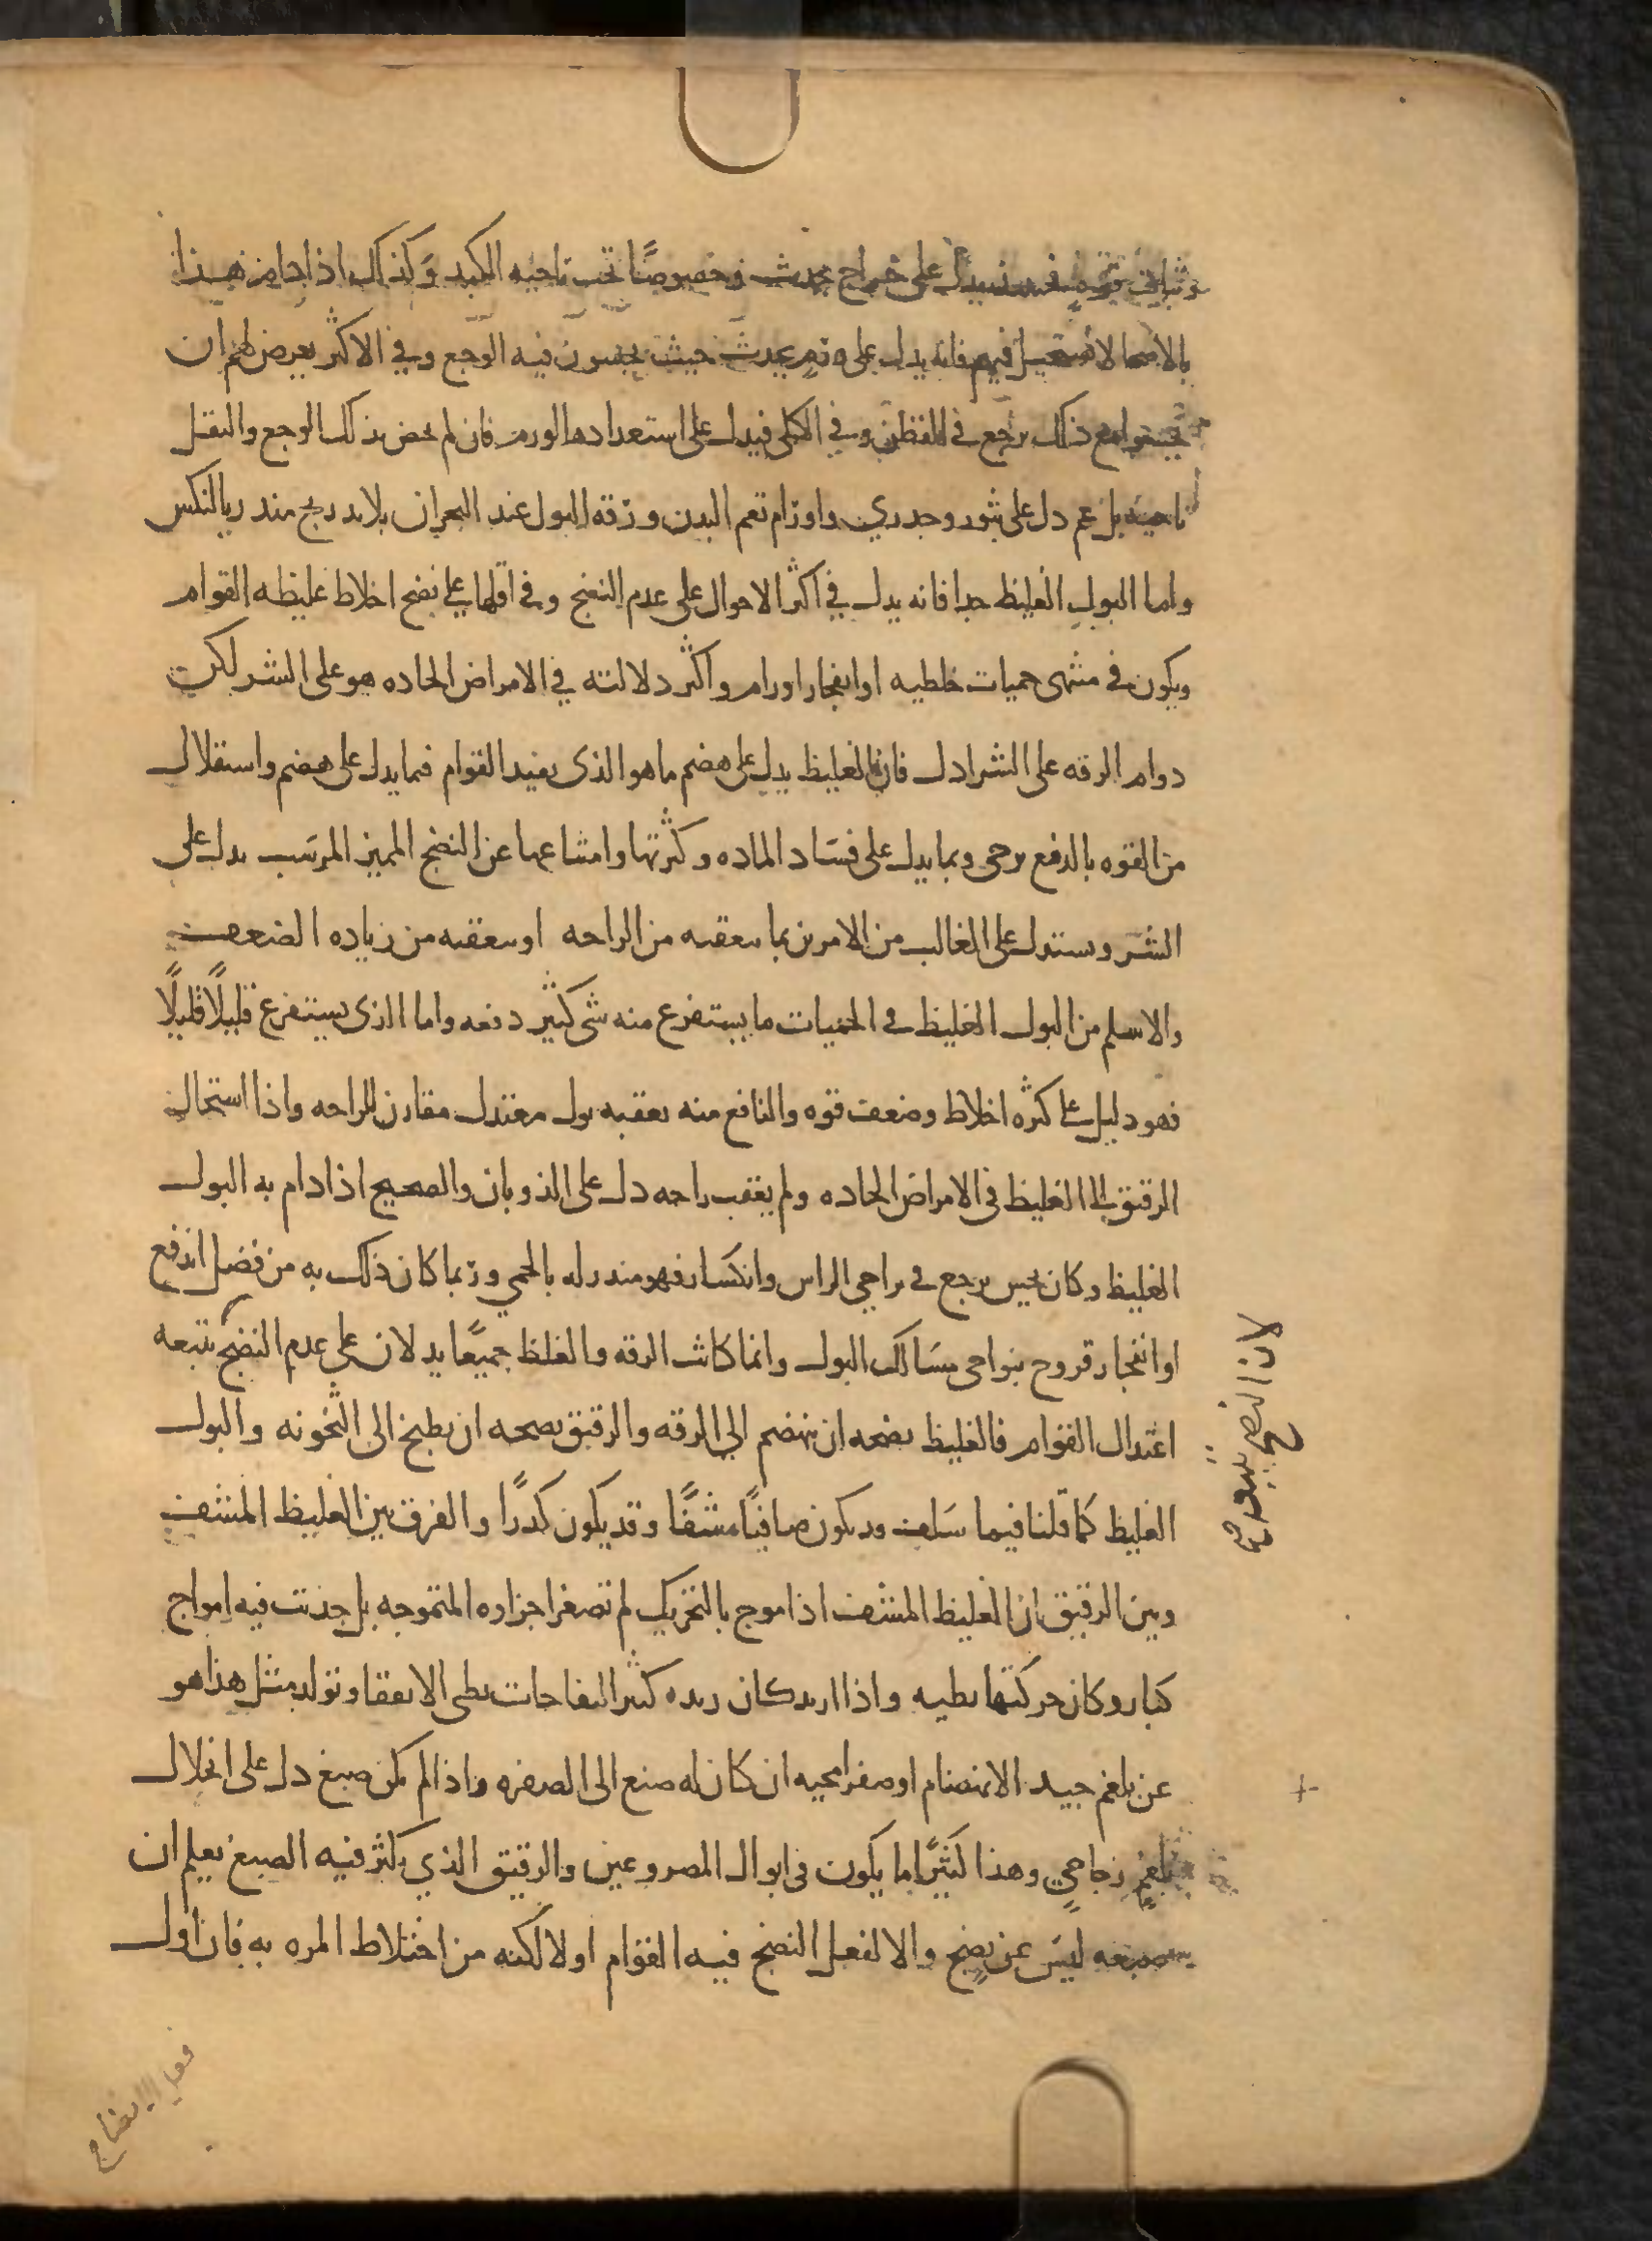 وثبات قوة فحينئذ يدل على خراج يحدث وخصوصًا تحت ناحيه الكبد وكذلك اذا دام هذا
بالاصحا لا يستحيل فيهم فانه يدل على ورم يحدث حيث يحسون فيه الوجع وفي الاكثر يعرض لهم ان
يحسوا مع ذلك بوجع في القطن وفي الكلى فيدل على استعدادها لورم فان لم يخص بذلك الوجع والثقل
ناحيه بل عم دل على بثور وجدري واورام تعم البدن ورقه البول عند البحران بلا تدريج منذر بالنكس
واما البول الغليظ جدا فانه يدل في اكثر الاحوال على عدم النضج وفي اقلها على نضج اخلاط غليظه القوام
ويكون في منتهى حميات خلطيه او انفجار اورام واكثر دلالته في الامراض الحاده هو على الشر لكن
دوام الرقه على الشر ادل فان الغليظ يدل على هضم ما هو الذي يفيد القوام فما يدل على هضم واستقلال
من القوه بالدفع يرجى وبما يدل على فساد الماده وكثرتها وامتناعها عن النضج المميز المرسب يدل على
الشر ويستدل على الغالب من الامرين بما يعقبه من الراحه او يعقبه من زياده الضعف
والاسلم من البول الغليظ في الحميات ما يستفرغ منه شي كثير دفعه واما الذي يستفرغ قليلًا قليلًا
فهو دليل على كثره اخلاط وضعف قوه والنافع منه يعقبه بول معتدل مقارن للراحه واذا استحال
الرقيق الى الغليظ في الامراض الحاده ولم يعقب راحه دل على الذوبان والصحيح اذا دام به البول
الغليظ وكان يحس بوجع في نواحي الراس وانكسار فهو منذر له بالحمي وربما كان ذلك به من فضل اندفع
او انفجار قروح بنواحي مسالك البول وانما كانت الرقه والغلظ جميعًا يدلان على عدم النضج يتبعه
اعتدال القوام فالغليظ نضجه ان ينهضم الى الرقه والرقيق نضجه ان يطبخ الى الثخونه والبول
الغليظ كما قلنا فيما سلف قد يكون صافيًا مشفًا وقد يكون كدرًا والفرق بين الغليظ المشف
وبين الرقيق ان الغليظ المشف اذا موج بالتحريك لم تصغر اجزاوه المتموجه بل حدثت فيه امواج
كبار وكان حركتها بطيه واذا ازبد كان زبده كثير النفاخات بطي الانفقا وتولد مثل هذا هو
عن بلغم جيد الانهضام او صفرا محيه ان كان له صبغ الى الصفره واذا لم يكن صبغ دل على انحلال
بلغم زجاجي وهذا كثيرًا ما يكون في ابوال المصروعين والرقيق الذي يكثر فيه الصبغ يعلم ان
صبغه ليس عن نضج والا لفعل النضج فيه القوام اولا لكنه من اختلاط المره به فان اول
لان النضج يتبعه صح
فعل الانضاج